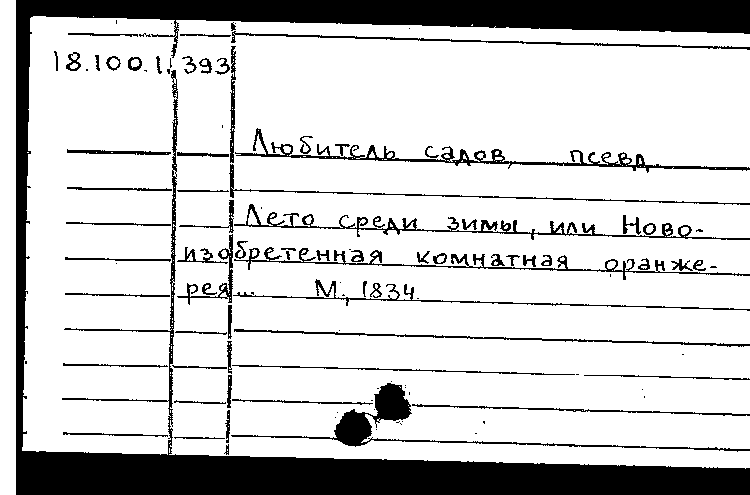 18.100.1.393
Любитель садов, псевд.
Лето среди зимы, или Ново-
изобретенная комнатная оранже-
рея... М., 1834.